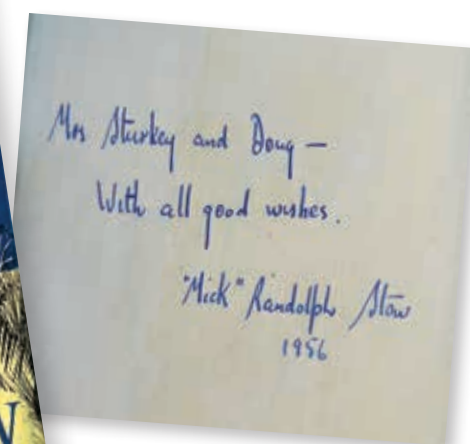 Mrs Sturkey and Doug —
With all good wishes.
"Mick" Randolph Stow
1956
W